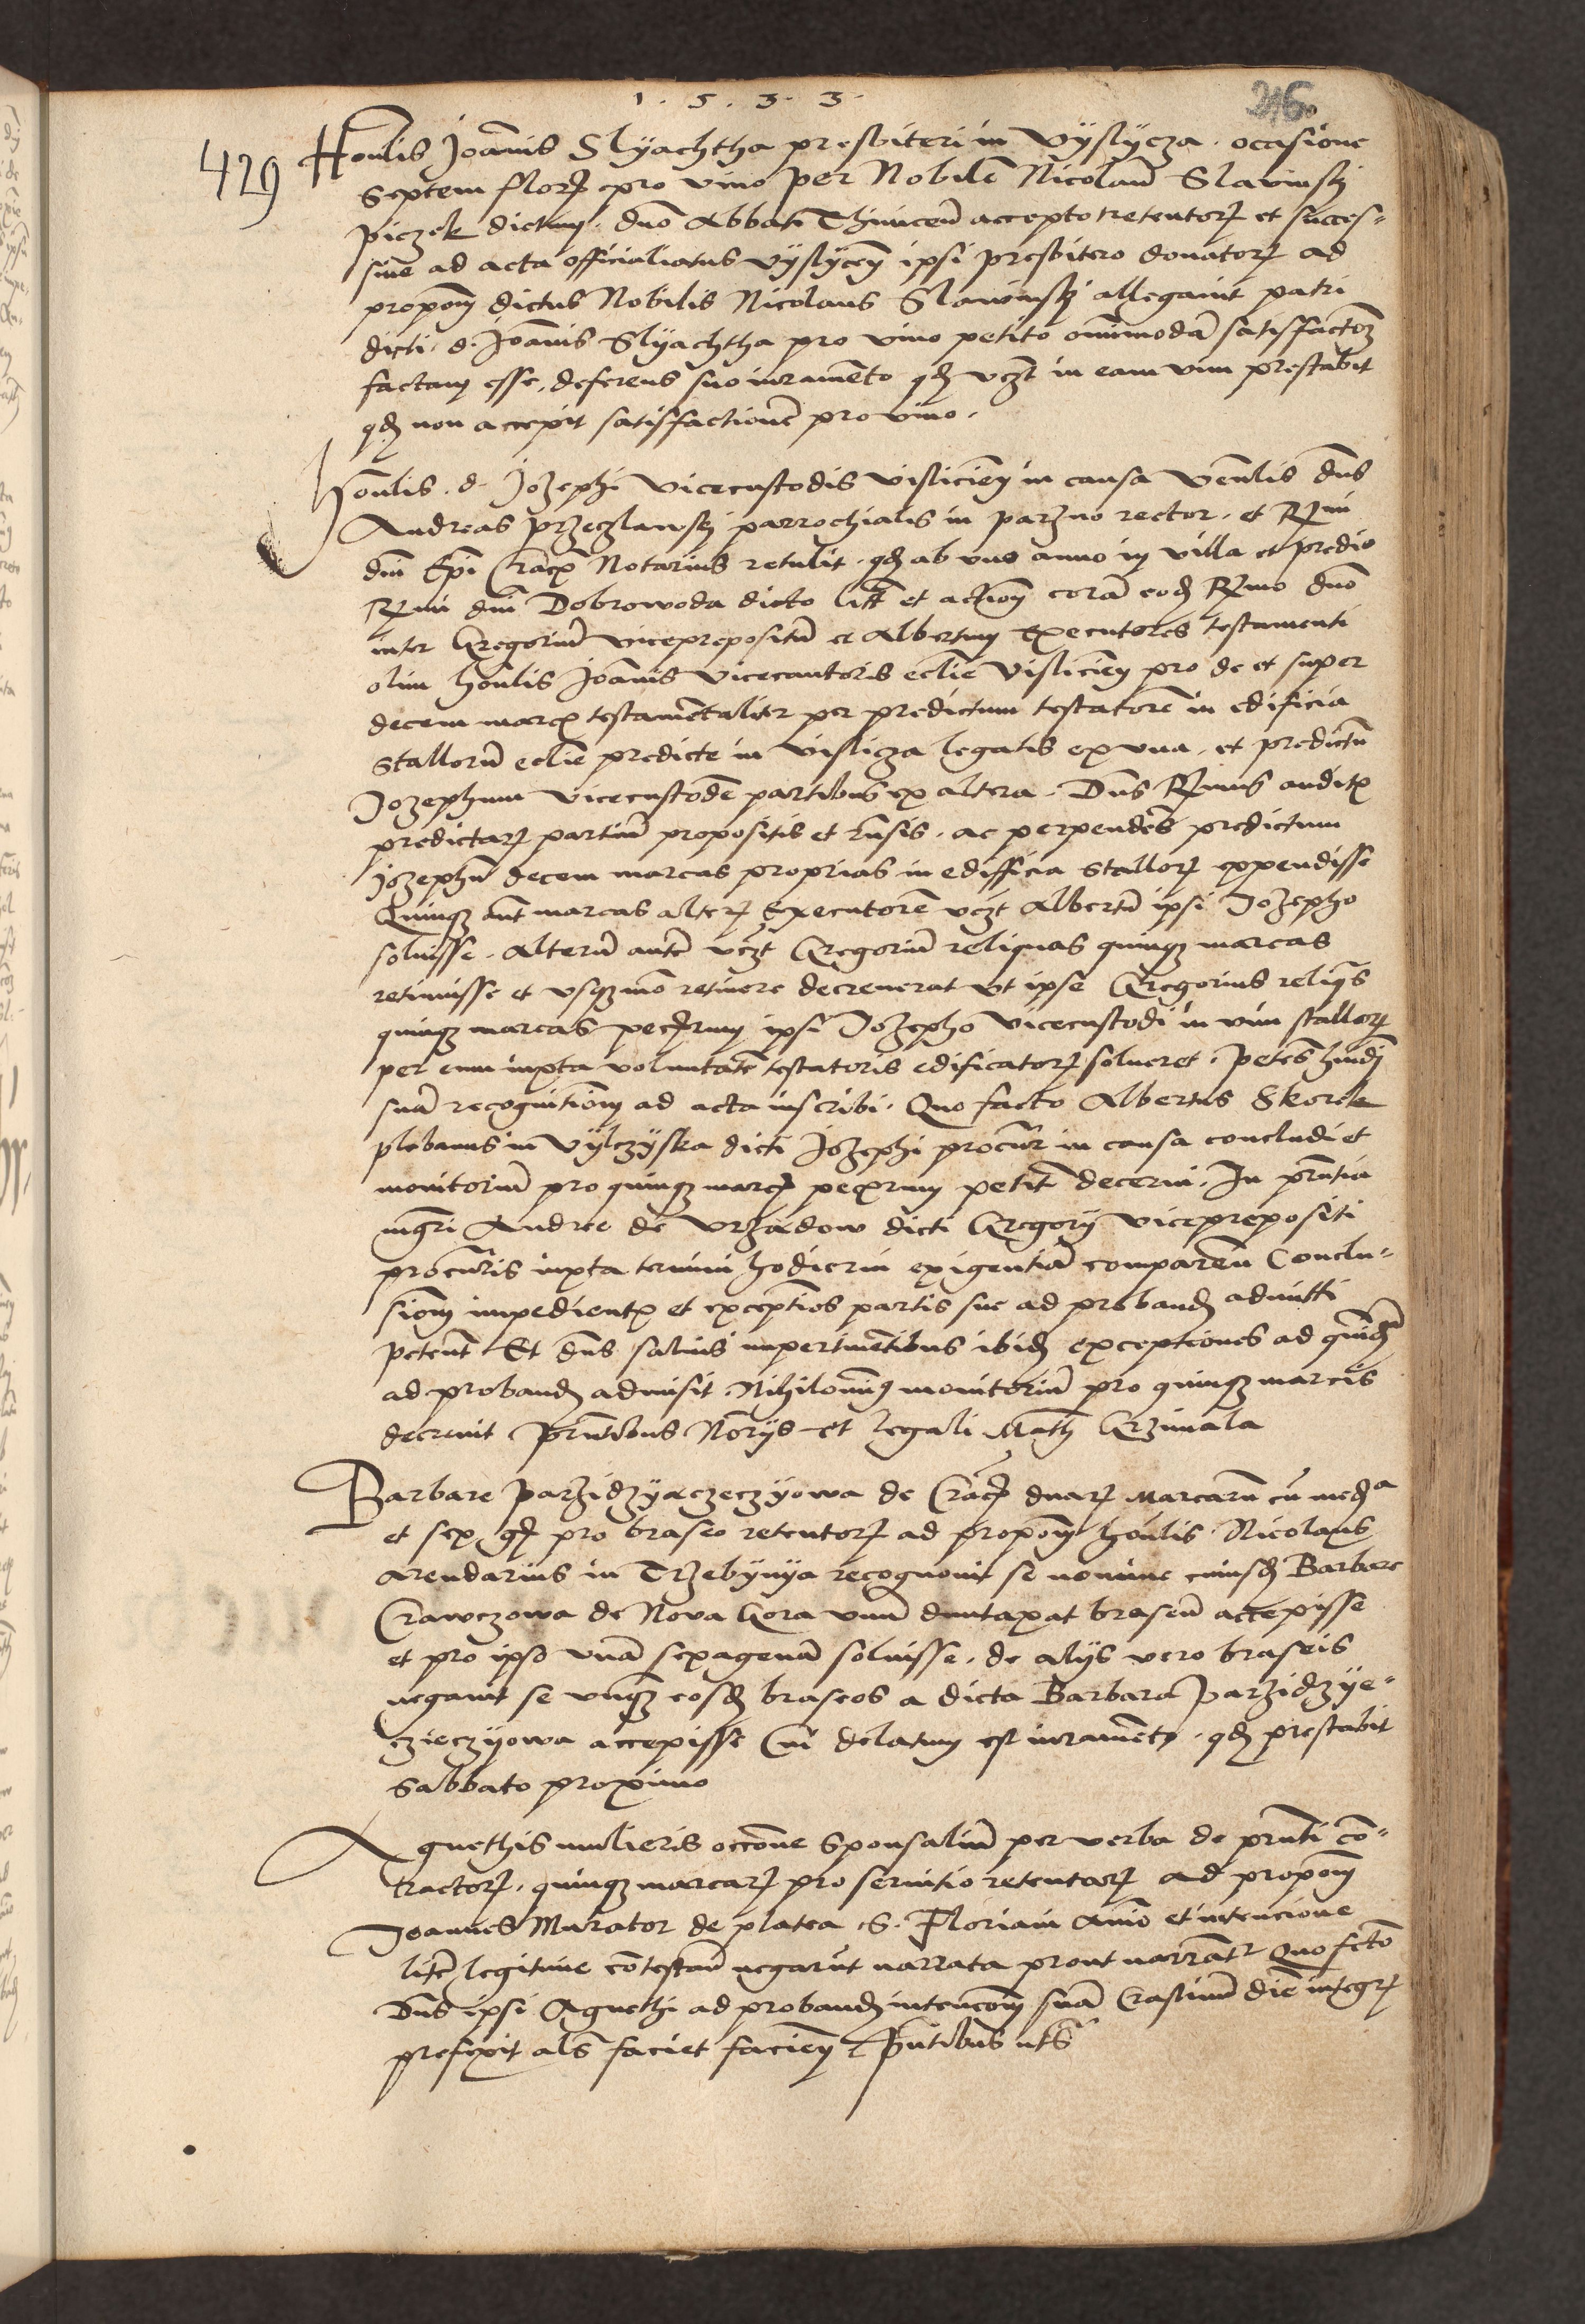 1 . 5 . 3 . 3 .
216
429
Honlis Joannis Slyachtha presbiteri in Vyslycza . ocasione
Septem florȝ pro vino per Nobilē Nicolaū Slavinsky
piczek dictum . dno Abbati Thinecen̄ accepto retentorȝ et succes-
sive ad acta officialiatus vyslycen̄ ipsi presbitero donatorȝ ad
proponē dictus Nobilis Nicolaus Slawinsky allegavit patri
dicti . d . Joannis Slyachtha pro vino petito omnimodā satisfactoēȝ
factam esse . deferens suo iuramento qđ vcȝt in eam vim prestabit
qđ non accepit satisfactionē pro vino .
Honlis . d . Jozephi Vicecustodis visliciēn in causa Venlis dns
Andreas przeczlawsky parrochialis in parzno rector . et Rmi
dni Epi Cracȝ Notarius retulit . qđ ab uno anno in villa et predio
Rmi dni Dobrowoda dicto litē et actionē corā eođ Rmo dno
inter Gregoriū viceprepositū et Albertum Executores testamenti
olim honlis Joannis vicecantoris eclie visliciēn pro de et super
decem marcȝ testamentaliter per predictum testatorē in edificia
stallorū eclie predicte in vislicza legatis ex una . et predictū
Jozephum vicecustodē partibus ex altera . Dns Rmus auditȝ
predictarȝ partiū propositis et rnsis . ac perpendēs predictum
Jozephū decem marcas proprias in edifficia stallorȝ exxpendisse
Quinqȝ aūt marcas alterȝ Executorē vcȝt Albertū ipsi Jozepho
solvisse . alterū autē vcȝt Gregoriū reliquas quinqȝ marcas
retinuisse et usqȝ mō retinere decreverat ut ipse Gregorius reliqs
quinqȝ marcas pecȝrum ipsi Jozepho vicecustodi in vim stallorȝ
per eum iuxta voluntatē testatoris edificatorȝ solveret . petēs hmđi
suā recognitionē ad acta inscribi . Quo facto Albertus Skorek
plebanus in Vylczyska dicti Jozephi procūr in causa concludi et
monitoriū pro quinqȝ marcȝ pecȝrum petit decerni . In pntia
mgri Andree de Vrzadow dicti Gregorij viceprepositi
procuris iuxta termini hodierni exigentiā comparen̄ Conclu-
sionē impedientȝ et exceptiōs partis sue ad probanđ admitti
petent . Et dns salvis impertinētibus ibiđ exceptiones ad
ad probanđ admisit . Nihilomīȝ monitoriū pro quinqȝ marcis
decrevit . Pntibus Norijs et legali Math Grzimala
Barbare parzidzyaczeczyowa de Cracȝ duarȝ marcarū cū međa
et sex gȝ pro braseo retentorȝ ad proponē honlis . Nicolaus
arendarius in Trzebynya recognovit se nomine cuiusđ Barbare
Crawczowa de Nova Gora unū duntaxat braseū accepisse
et pro ipso unā sexagenā solvisse . de alijs vero braseis
negavit se unqȝ eosđ braseos a dicta Barbara parzidzye-
czieczyowa accepisse Cui delatum est iuramentȝ . qđ prestabit
Sabbato proximo
Agnethis mulieris occone sponsaliū per verba de pnti cō-
tractorȝ . quinqȝ marcarȝ pro servitio retentarȝ ad proponē
Joannes Murator de platea . S . Floriani animo et intencione
litē legitime cōtestan̄ negavit narrata prout narrātr Quo fcto
Dns ipsi Agnethi ad probanđ intencoēm suā Crastinū diē integrȝ
prefixit als faciet facien̄ . Pntibus uts